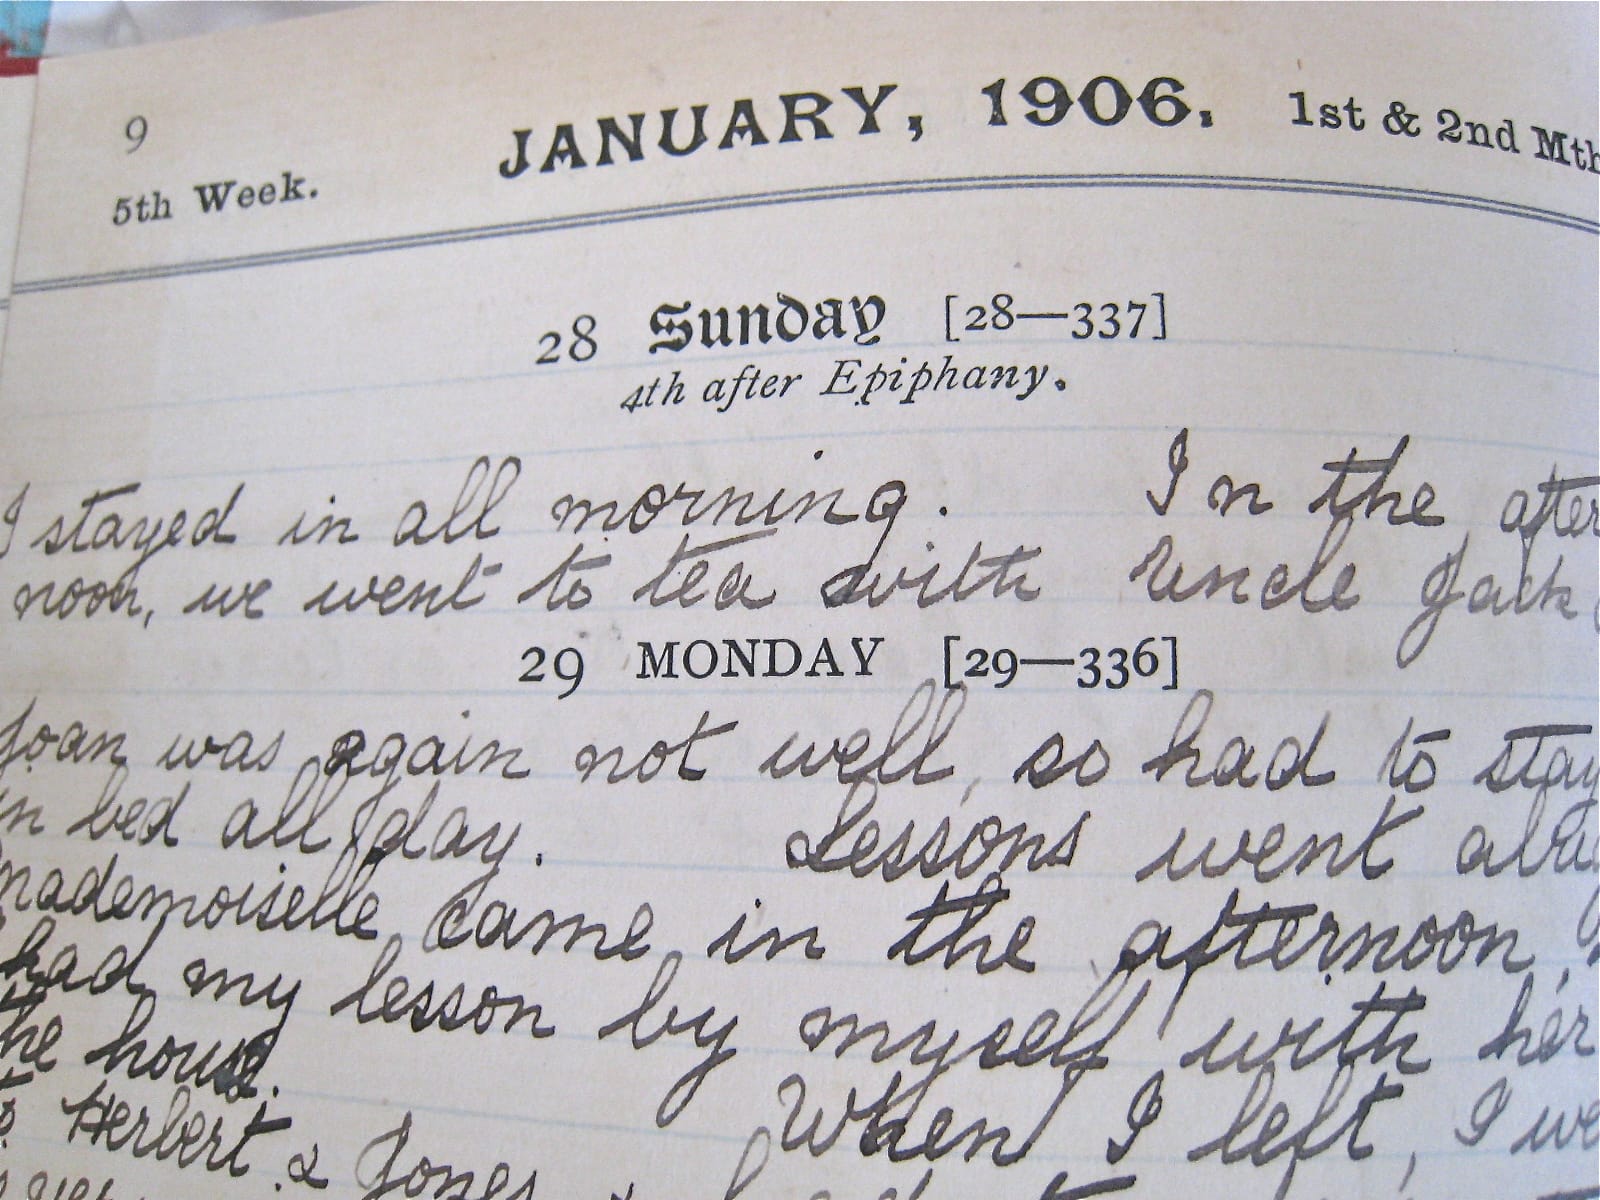 9
JANUARY, 1906. 1st & 2nd Mth
5th Week.
28 Sunday [28—337]
4th after Epiphany.
I stayed in all morning. In the after
noon, we went to tea with Uncle Jack
29 MONDAY [29—336]
Joan was again not well, so had to stay
in bed all day. Lessons went
Mademoiselle came in the afternoon,
had my lesson by myself with her
the house. When I left, I we
to Herbert & Jones